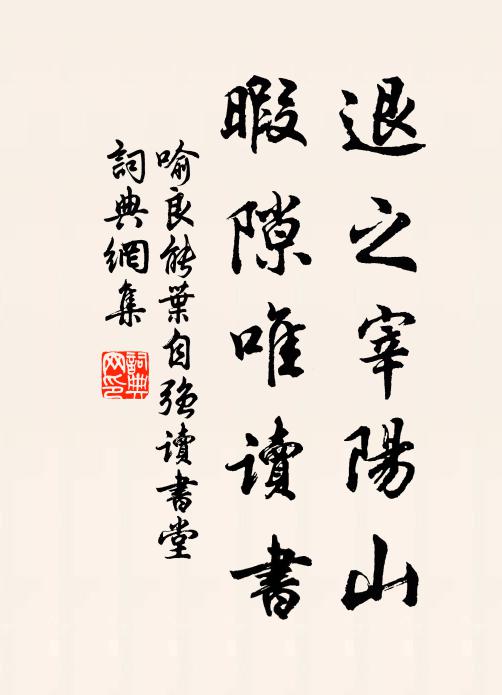 退之宰陽山
暇隙唯讀書
喻良能葉自強讀書堂
詞典網集
詞典網印